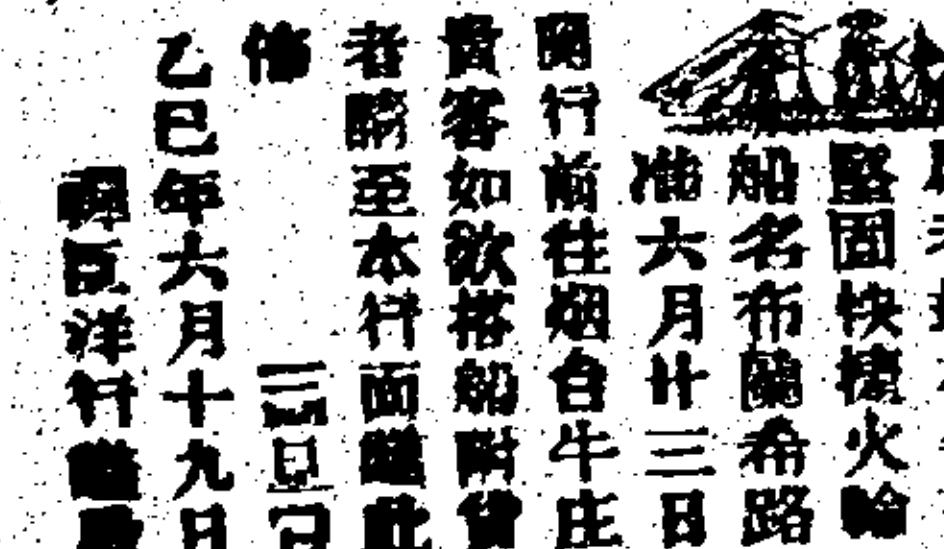 堅固快捷火輪
船名布蘭希路
准六月廿三日
開行前往烟台牛庄
貴客如欲搭船附貨
者請至本行面議此
佈
乙巳年六月十九日
臣洋行